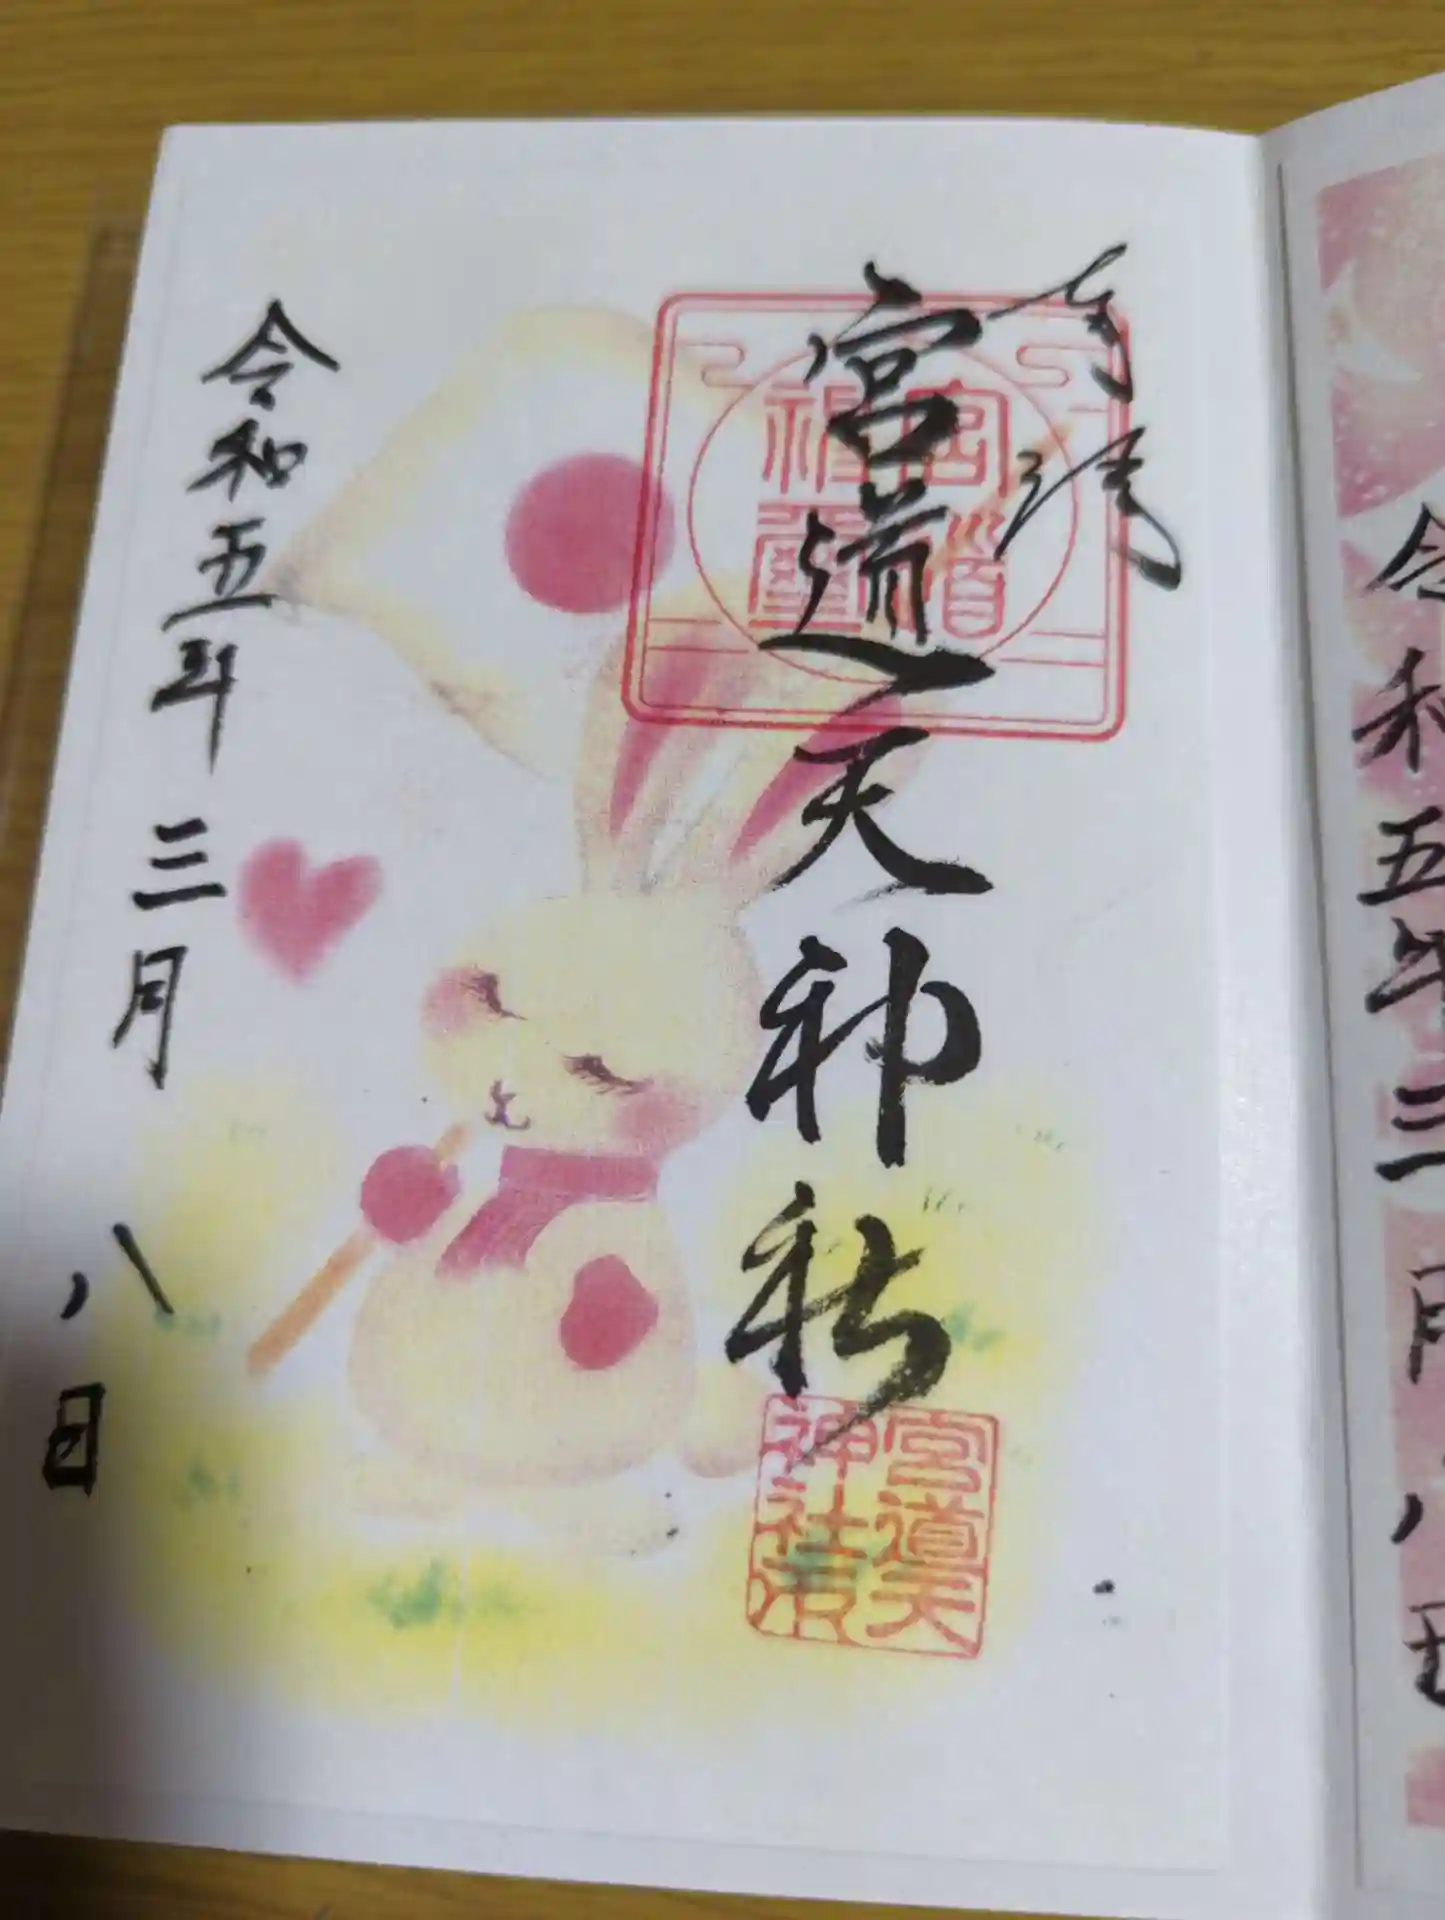 奉拝
宮道天神社
宮道
神社
宮道天
神社印
令和五年 三月 八日
令和五年三月 八日